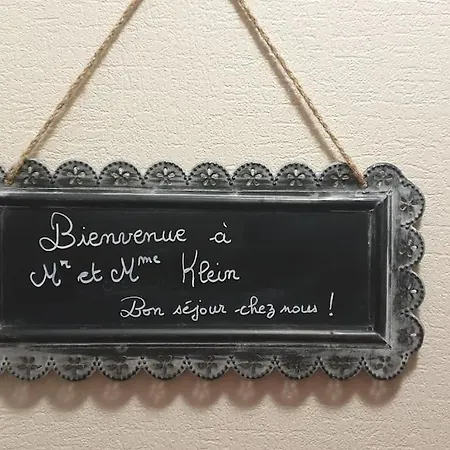 Bienvenue à
Mr et Mme Klein
Bon séjour chez nous !